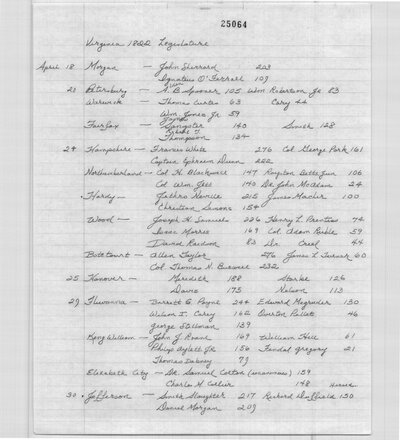 25064
Virginia 1822 Legislature
April 18 Morgan — John Sherrard 203
Ignatius O'Ferrall 109
23 Petersburg — A. B. Spooner 105 Wm Robertson Jr 83
Warwick — Thomas Curtis 63 Cary 44
Wm. Jones Jr 59
Fairfax — Sangster 140 Smith 128
Thompson 134
24 Hampshire — Francis White 276 Col George Park 161
Captain Ephraim Dunn 222
Northumberland — Col H. Blackwell 147 Royston Betts Jun 106
Col Wm. Jett 140 Dr. John McAdam 24
Hardy — Jethro Neville 215 James Machir 100
Christian Simons 154
Wood — Joseph H. Samuels 226 Henry L. Prentiss 74
Isaac Morris 169 Col. Adam 59
David 83 Creel 44
Botetourt — Allen Taylor 276 James L. Turner 60
Col. Thomas N. Burwell 232
25 Hanover — Meredith 188 Starke 126
Davis 175 Nelson 113
29 Fluvanna — Barrett G. Payne 244 Edward Magruder 130
Wilson J. Cary 162 Overton 46
George Stillman 139
King William — John J. Roane 169 William Hill 61
Philip Aylett Jr 156 Fendal Gregory 21
Thomas Dabney 79
Elizabeth City — Dr. Samuel Colton (unanimous) 159
Charles M. Collier 148
30 Jefferson — Smith Slaughter 217 Richard Duffield 150
Daniel Morgan 209